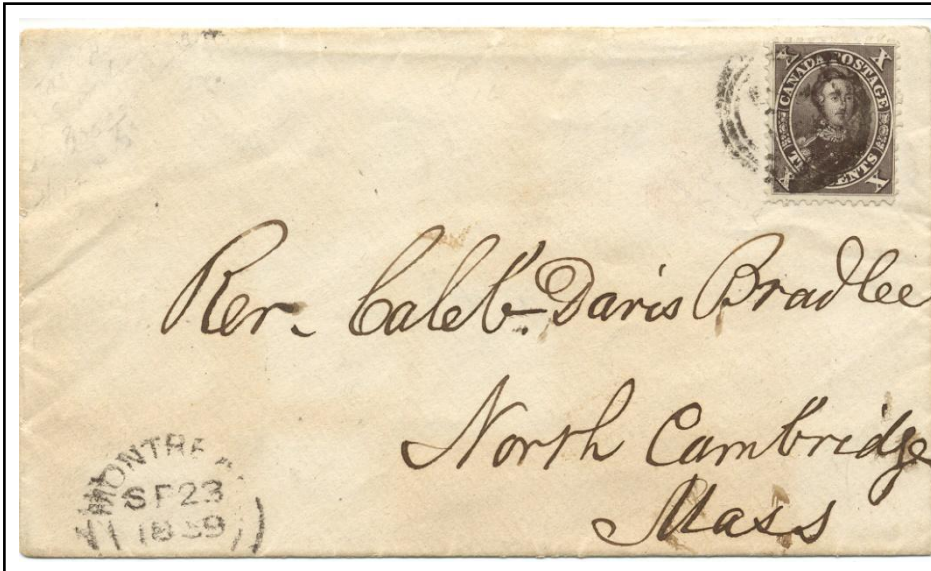 X X
CANADA POSTAGE
CENTS
X X
Rev. Caleb Davis Bradlee
North Cambridge
Mass
MONTREA
SP 23
1859